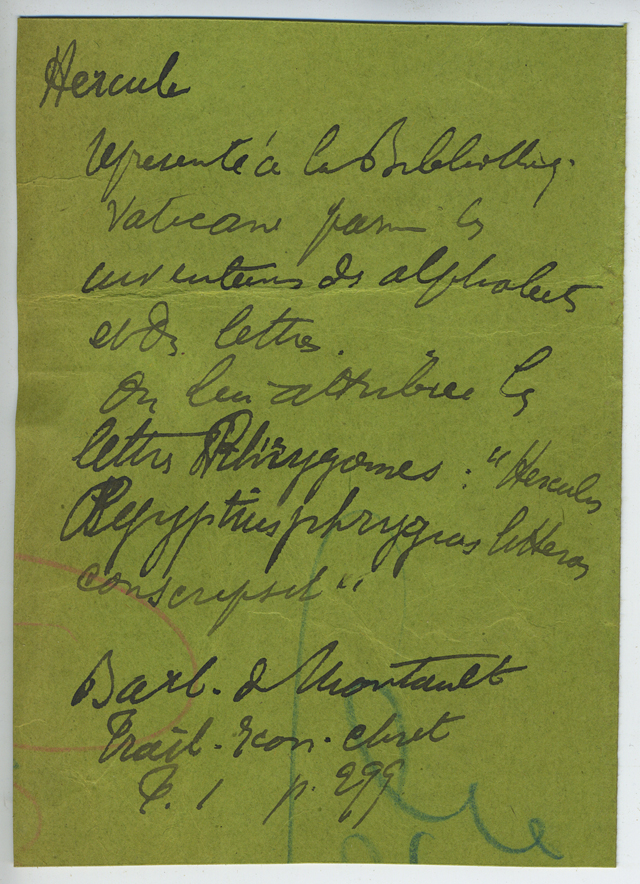 Hercule
représenté à la Bibliothèq.
Vaticane parmi les
inventeurs des alphabets
et des lettres.
On leur attribue les
lettres Phrygiennes : "Hercules
Aegyptius phrygias litteras
conscripsit"
Barb. de Montault
Trait. Icon. chret
T. 1 p. 299